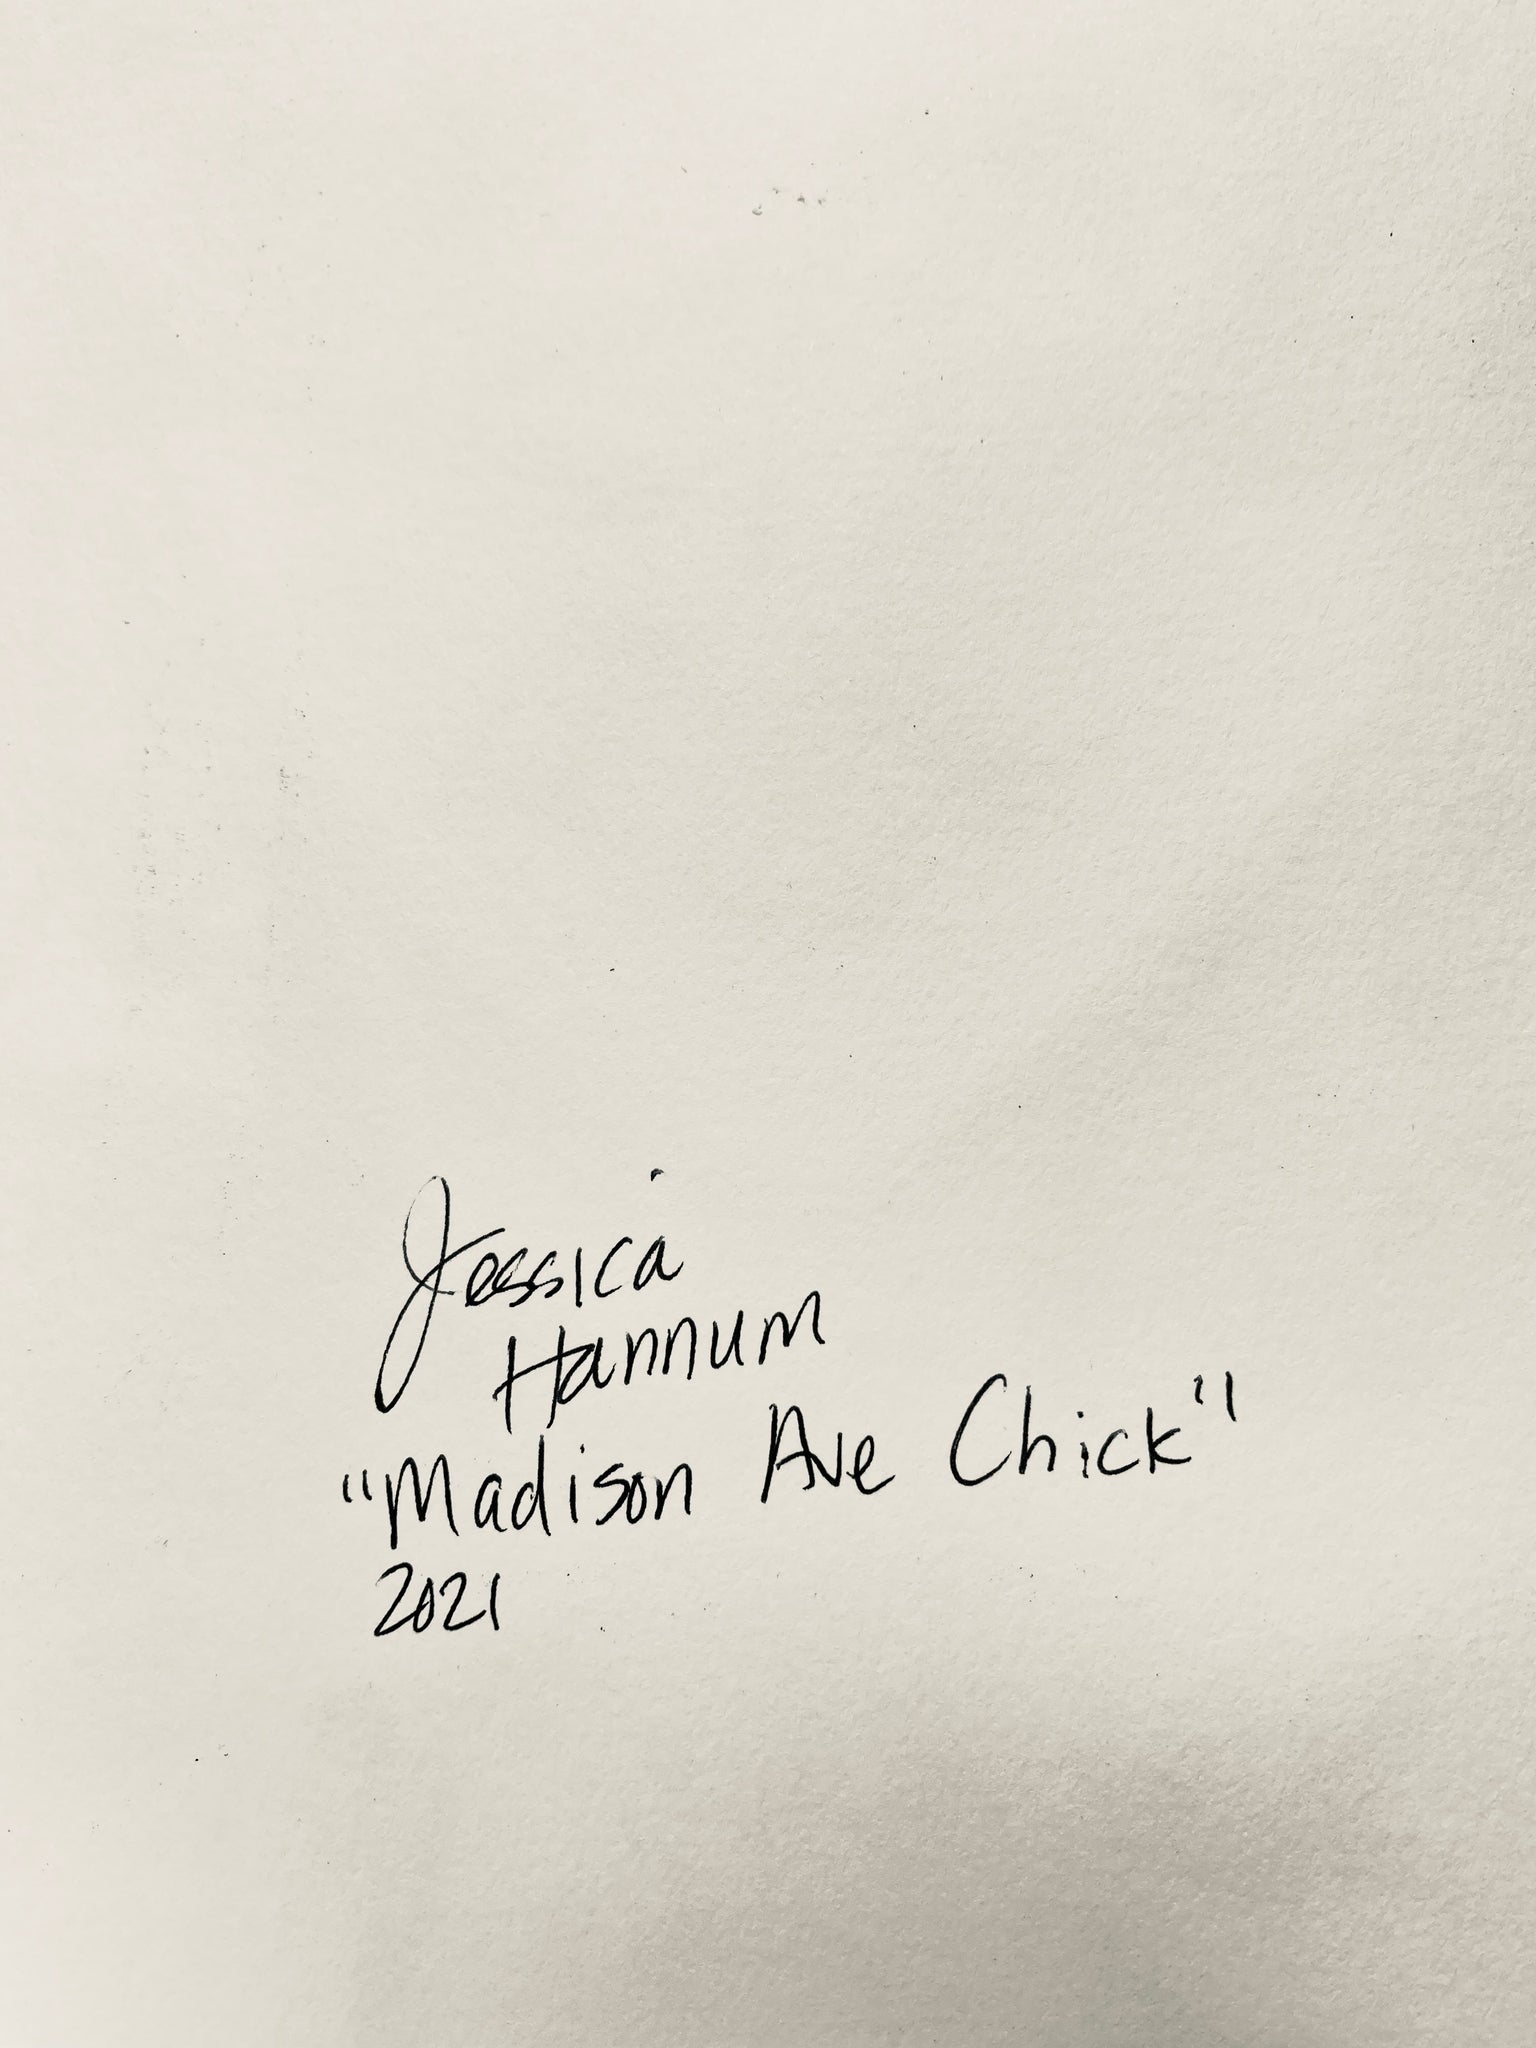 Jessica
Hannum
"Madison Ave Chick"
2021